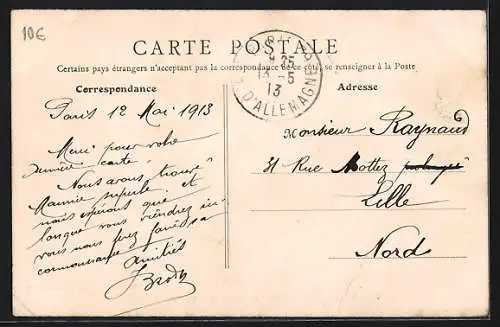 10€
CARTE POSTALE
Certains pays étrangers n'acceptant pas la correspondance de ce côté, se renseigner à la Poste
Correspondance
Paris 12 Mai 1913
Merci pour votre
dernière carte.
Nous avons trouvé
Mannie superbe et
nous espérons que
lorsque vous viendrez ici
vous nous ferez faire sa
connaissance
Amitiés
Adresse
Monsieur Raynaud
31 Rue Mottez prolongée
Lille
Nord
PARIS
9 35
13 - 5
13
D'ALLEMAGNE